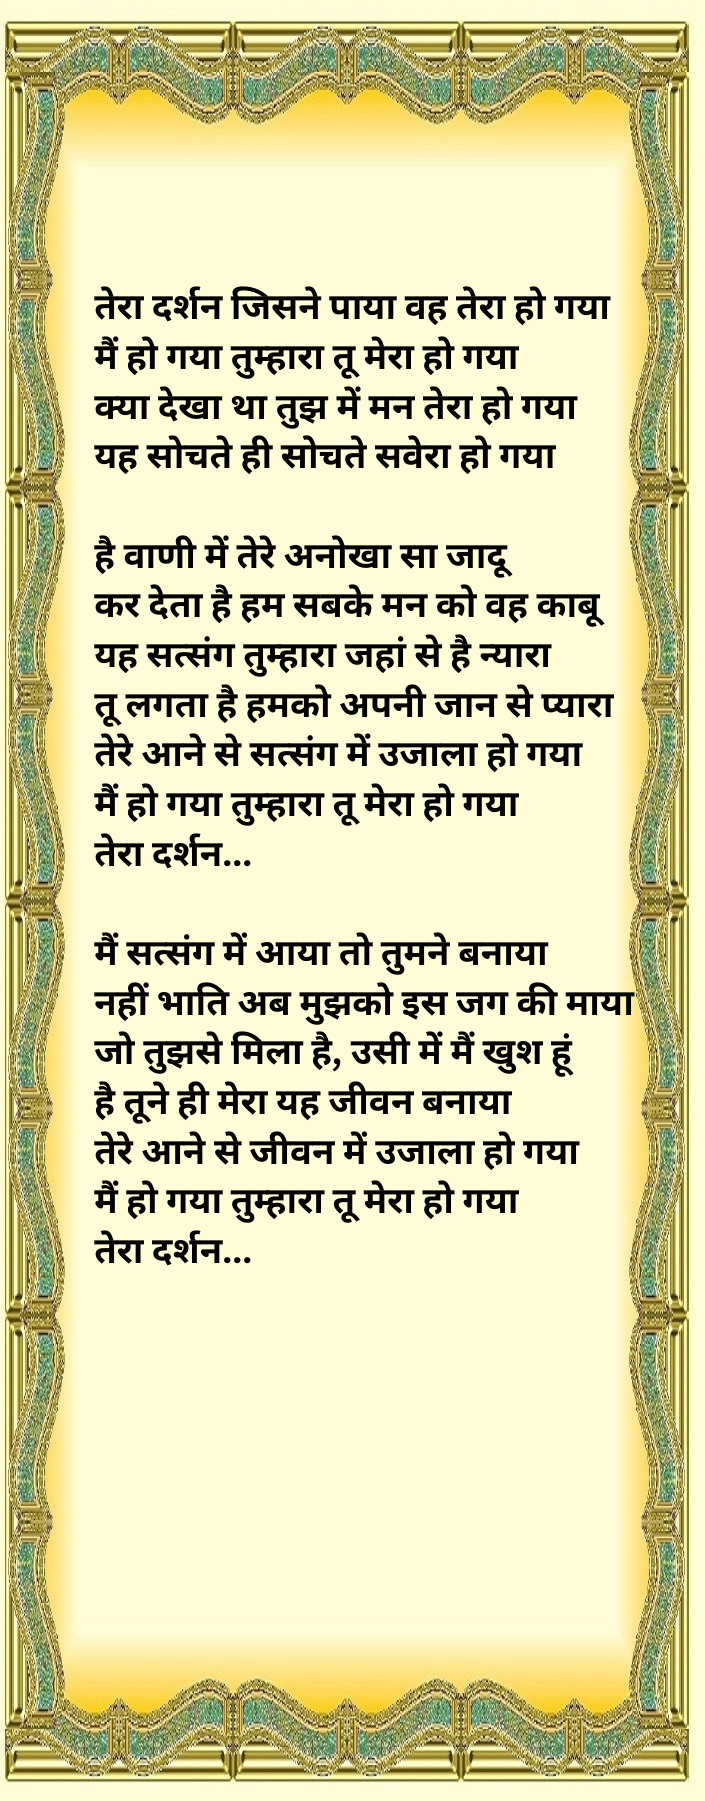 तेरा दर्शन जिसने पाया वह तेरा हो गया
मैं हो गया तुम्हारा तू मेरा हो गया
क्या देखा था तुझ में मन तेरा हो गया
यह सोचते ही सोचते सवेरा हो गया

है वाणी में तेरे अनोखा सा जादू
कर देता है हम सबके मन को वह काबू
यह सत्संग तुम्हारा जहां से है न्यारा
तू लगता है हमको अपनी जान से प्यारा
तेरे आने से सत्संग में उजाला हो गया
मैं हो गया तुम्हारा तू मेरा हो गया
तेरा दर्शन...

मैं सत्संग में आया तो तुमने बनाया
नहीं भाति अब मुझको इस जग की माया
जो तुझसे मिला है, उसी में मैं खुश हूं
है तूने ही मेरा यह जीवन बनाया
तेरे आने से जीवन में उजाला हो गया
मैं हो गया तुम्हारा तू मेरा हो गया
तेरा दर्शन...